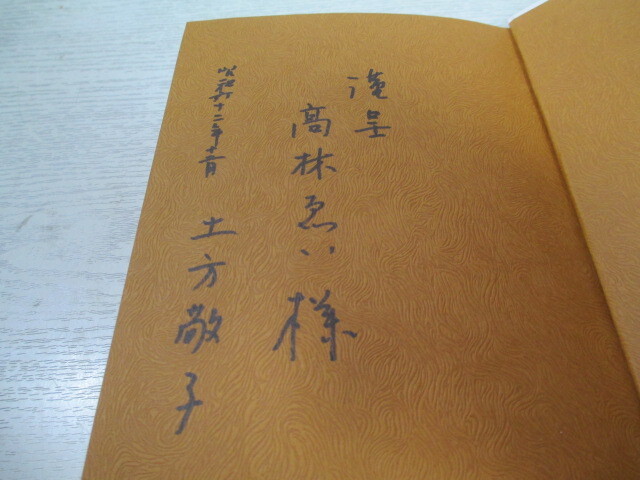 謹呈
高林ゑい様
昭和六十二年十一月 土方敬子